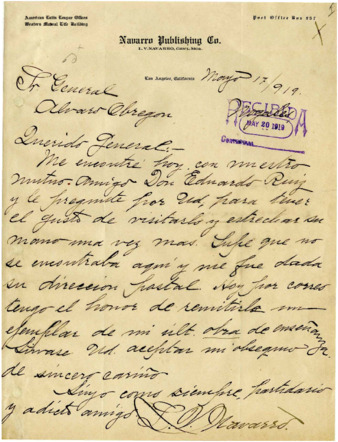 American Latin League Offices
Western Mutual Life Building
Post Office Box 957
Navarro Publishing Co.
I. V. NAVARRO, GENL. MGR.
Los Angeles, California
Mayo 17/919.
Sr General
Alvaro Obregon
RECIBIDA
MAY 20 1919
Querido General:-
Me encontré hoy con nuestro
mutuo-Amigo Don Eduardo Ruiz
y le pregunté por Ud, para tener
el gusto de visitarlo y estrechar su
mano una vez mas. Supe que no
se encontraba aquí y me fue dada
su direccion postal. Hoy por correo
tengo el honor de remitirle un
ejemplar de mi ult. obra de enseñanza
Sirvase Ud. aceptar mi obsequio
de sincero cariño
Sigo como siempre, partidario
y adicto amigo I. V. Navarro.